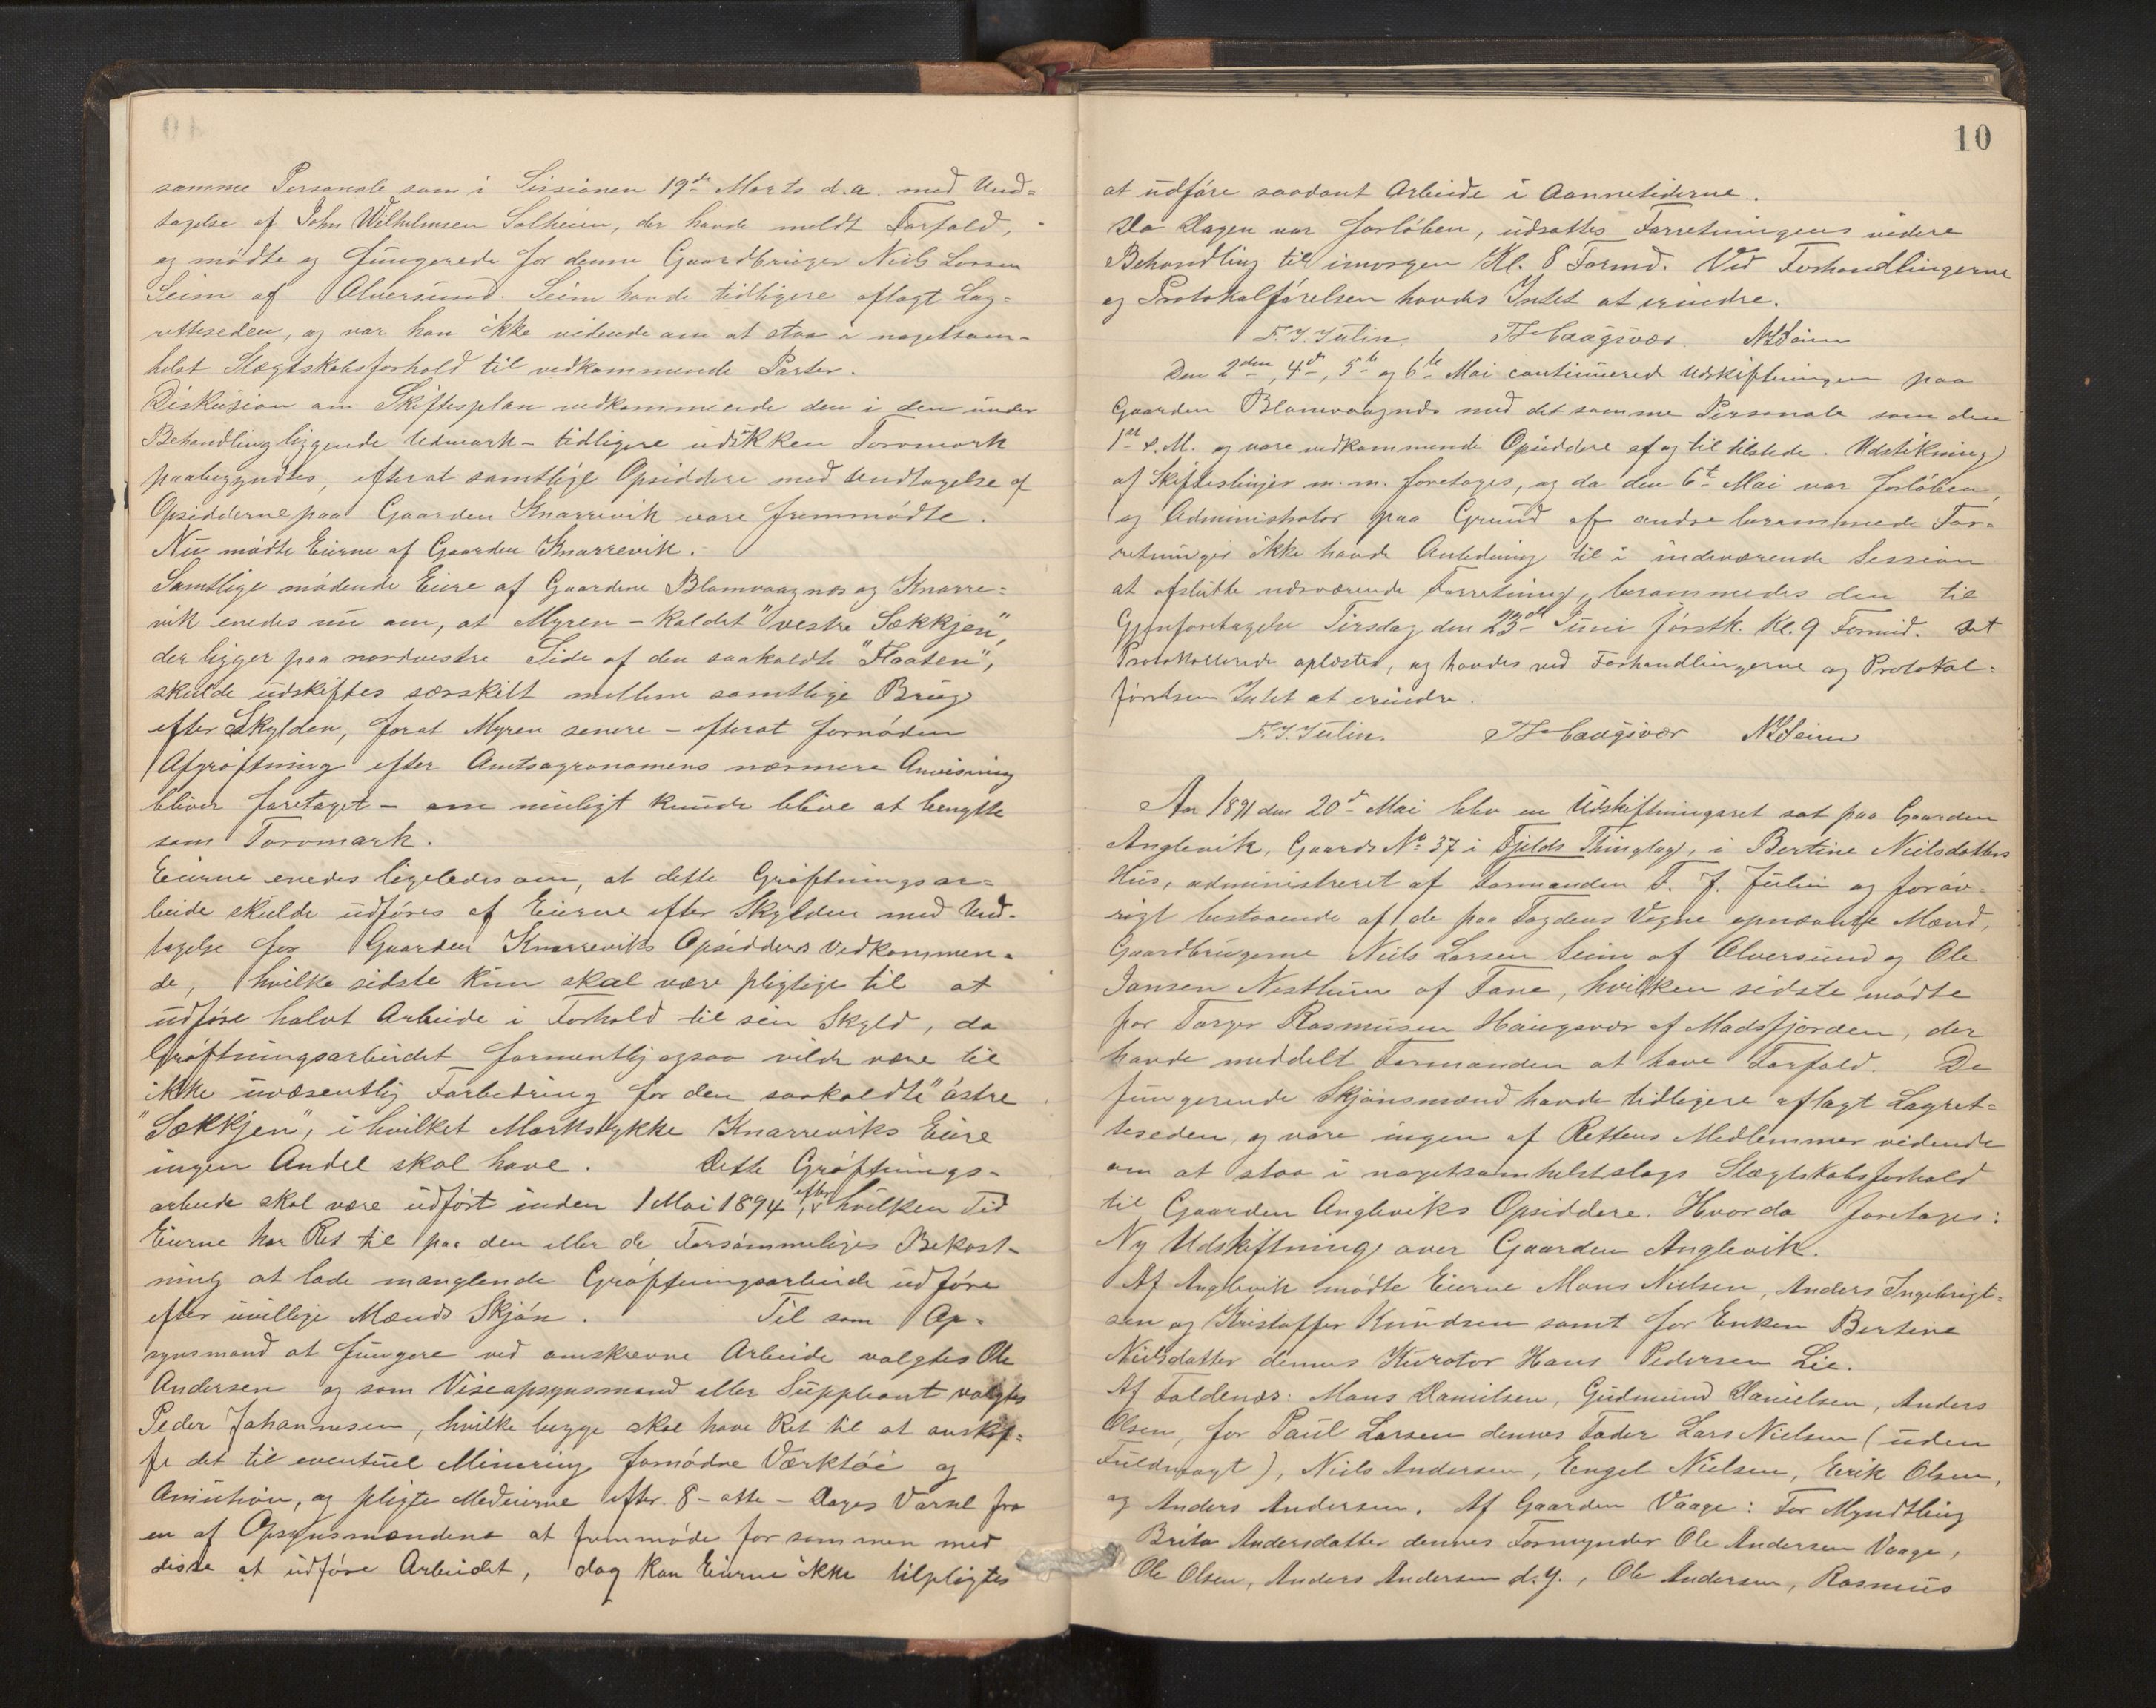 samme Personale som i Sessionen 19de Marts d.a. med Und=
tagelse af John Wilhelmsen Solheim, der havde meldt Forfald,
og mødte og fungerede for denne Gaardbruger Niels Larsen
Seim af Alversund. Seim havde tidligere aflagt Lag=
retteseden, og var han ikke vidende om at staa i nogetsom=
helst Slægtskabsforhold til vedkommende Parter.
Diskusion om Skiftesplan vedkommende den i den under
Behandling liggende Udmark – tidligere udskikken Torvmark
paabegyndtes, efterat samtlige Opsiddere med Undtagelse af
Opsidderne paa Gaarden Knarrevik vare fremmødte.
Nu mødte Eierne af Gaarden Knarrevik.
Samtlige mødende Eiere af Gaardene Blomvaagnæs og Knarre=
vik enedes nu om, at Myren – kaldet "vestre Sækkjen",
der ligger paa nordvestre Side af den saakaldte "Flaaten",
skulde udskiftes særskilt mellem samtlige Brug
efter Skylden, forat Myren senere – efterat fornøden
Afgrøftning efter Amtsagronomens nærmere Anvisning
bliver foretaget – om muligt kunde blive at benytte
som Torvmark.
Eierne enedes ligeledes om, at dette Grøftningsar=
beide skulde udføres af Eierne efter Skylden med Und=
tagelse for Gaarden Knarreviks Opsidderes Vedkommen=
de, hvilke sidste kun skal være pligtige til at
udføre halvt Arbeide i Forhold til sin Skyld, da
Grøftningsarbeidet formentlig ogsaa vilde være til
ikke uvæsentlig Forbedring for den saakaldte "østre
"Sækkjen", i hvilket Markstykke Knarreviks Eiere
ingen Andel skal have. Dette Grøftnings=
arbeide skal være udført inden 1 Mai 1894, efter hvilken Tid
Eierne har Ret til paa den eller de Forsømmeliges Bekost=
ning at lade manglende Grøftningsarbeide udføre
efter uvillige Mænds Skjøn. Til som Op=
synsmand at fungere ved omskrevne Arbeide valgtes Ole
Andersen og som Viseopsynsmand eller Suppleant valgtes
Peder Johannesen, hvilke begge skal have Ret til at anskaf=
fe det til eventuel Minering fornødne Værktøi og
Amution, og pligte Medeierne efter 8 – otte – Dages Varsel fra
en af Opsynsmændene at fremmøde for sammen med
disse at udføre Arbeidet, dog kan Eierne ikke tilpligtes
10
at udføre saadant Arbeide i Aannetiderne.
Da Dagen var forløben, udsattes Forretningens videre
Behandling til imorgen Kl. 8 Formd. Ved Forhandlingerne
og Protokolførelsen havdes Intet at erindre.
F. J. Julin. T Haugsvær. N L Seim
Den 2den, 4de, 5te og 6te Mai continuered Udskiftningen paa
Gaarden Blomvaagnæs med det samme Personale som den
1ste d.M. og vare vedkommende Opsiddere af og til tilstede. Udstikning
af Skifteslinjer m.m. foretoges, og da den 6te Mai var forløben,
og Administrator paa Grund af andre berammede For=
retninger ikke havde Anledning til i indeværende Session
at afslutte nærværende Forretning, berammedes den til
Gjenforetagelse Tirsdag den 23de Juni førstk. Kl. 9 Formid. Det
Protokollerede oplæstes, og havdes ved Forhandlingerne og Protokol=
førelsen Intet at erindre.
F. J. Julin. T Haugsvær N L Seim
Aar 1891 den 20de Mai blev en Udskiftningsret sat paa Gaarden
Anglevik, Gaards No 37 i Fjelds Thinglag, i Bertine Nielsdatters
Hus, administreret af Formanden F. J. Julin og forøv=
rigt bestaaende af de paa Fogdens Vegne opnævnte Mænd,
Gaardbrugerne Niels Larsen Seim af Alversund og Ole
Jansen Nesthun af Fane, hvilken sidste mødte
for Torger Rasmusen Haugsvær af Masfjorden, der
havde meddelt Formanden at have Forfald. De
fungerende Skjønsmænd havde tidligere aflagt Lagret=
teseden, og vare ingen af Rettens Medlemmer vidende
om at staa i nogetsomhelstslags Slægtskabsforhold
til Gaarden Angleviks Opsiddere. Hvorda foretoges:
Ny Udskiftning over Gaarden Anglevik.
Af Anglevik mødte Eierne Mons Nielsen, Anders Ingebrigt=
sen og Kristoffer Knudsen samt for Enken Bertine
Nielsdatter dennes Kurator Hans Pedersen Lie.
Af Foldenæs: Mons Danielsen, Gudmund Danielsen, Anders
Olsen, for Paul Larsen dennes Fader Lars Nielsen (uden
Fuldmagt), Niels Andersen, Engel Nielsen, Erik Olsen,
og Anders Andersen. Af Gaarden Vaage: For Myndtling
Brita Andersdatter dennes Formynder Ole Andersen Vaage,
Ole Olsen, Anders Andersen d.y., Ole Andersen, Rasmus